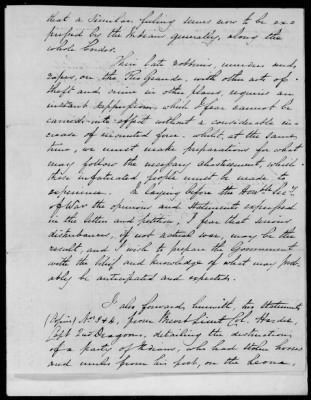 that a similar feeling seems now to be ex-
pressed by the Indians generally, along the
whole border.
Their late robberies, murders and
rapes, on the Rio Grande, with other acts of
theft and crime in other places, require an
instant suppression, which I fear cannot be
carried into effect without a considerable in-
crease of mounted force. Whilst, at the same
time, we must make preparations for what
may follow the necessary chastisement, which
these infatuated people must be made to
experience. In laying before the Honble Secy
of War the opinions and statements expressed
in the letters and petition, I fear that serious
disturbance, if not actual war, may be the
result, and I wish to prepare the Government
with the belief and knowledge of what may prob-
ably be anticipated and expected.
I also forward, herewith, two statements
(Copies) No. 3 & 4, from Brevet Lieut. Col. Hardee,
Capt 2nd Dragoons, detailing the destruction
of a party of Indians, who had stolen horses
and mules from his post, on the Leona,